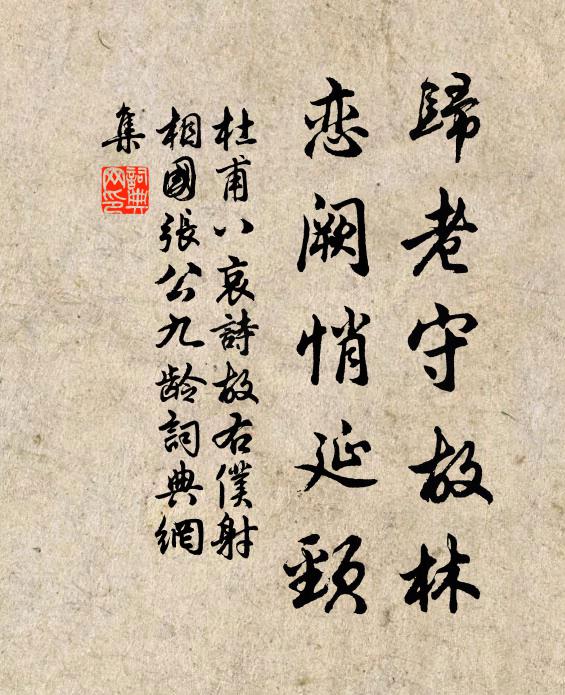 歸老守故林
戀闕悄延頸
杜甫八哀詩故右僕射
相國張公九齡詞典網
集
詞典
网印